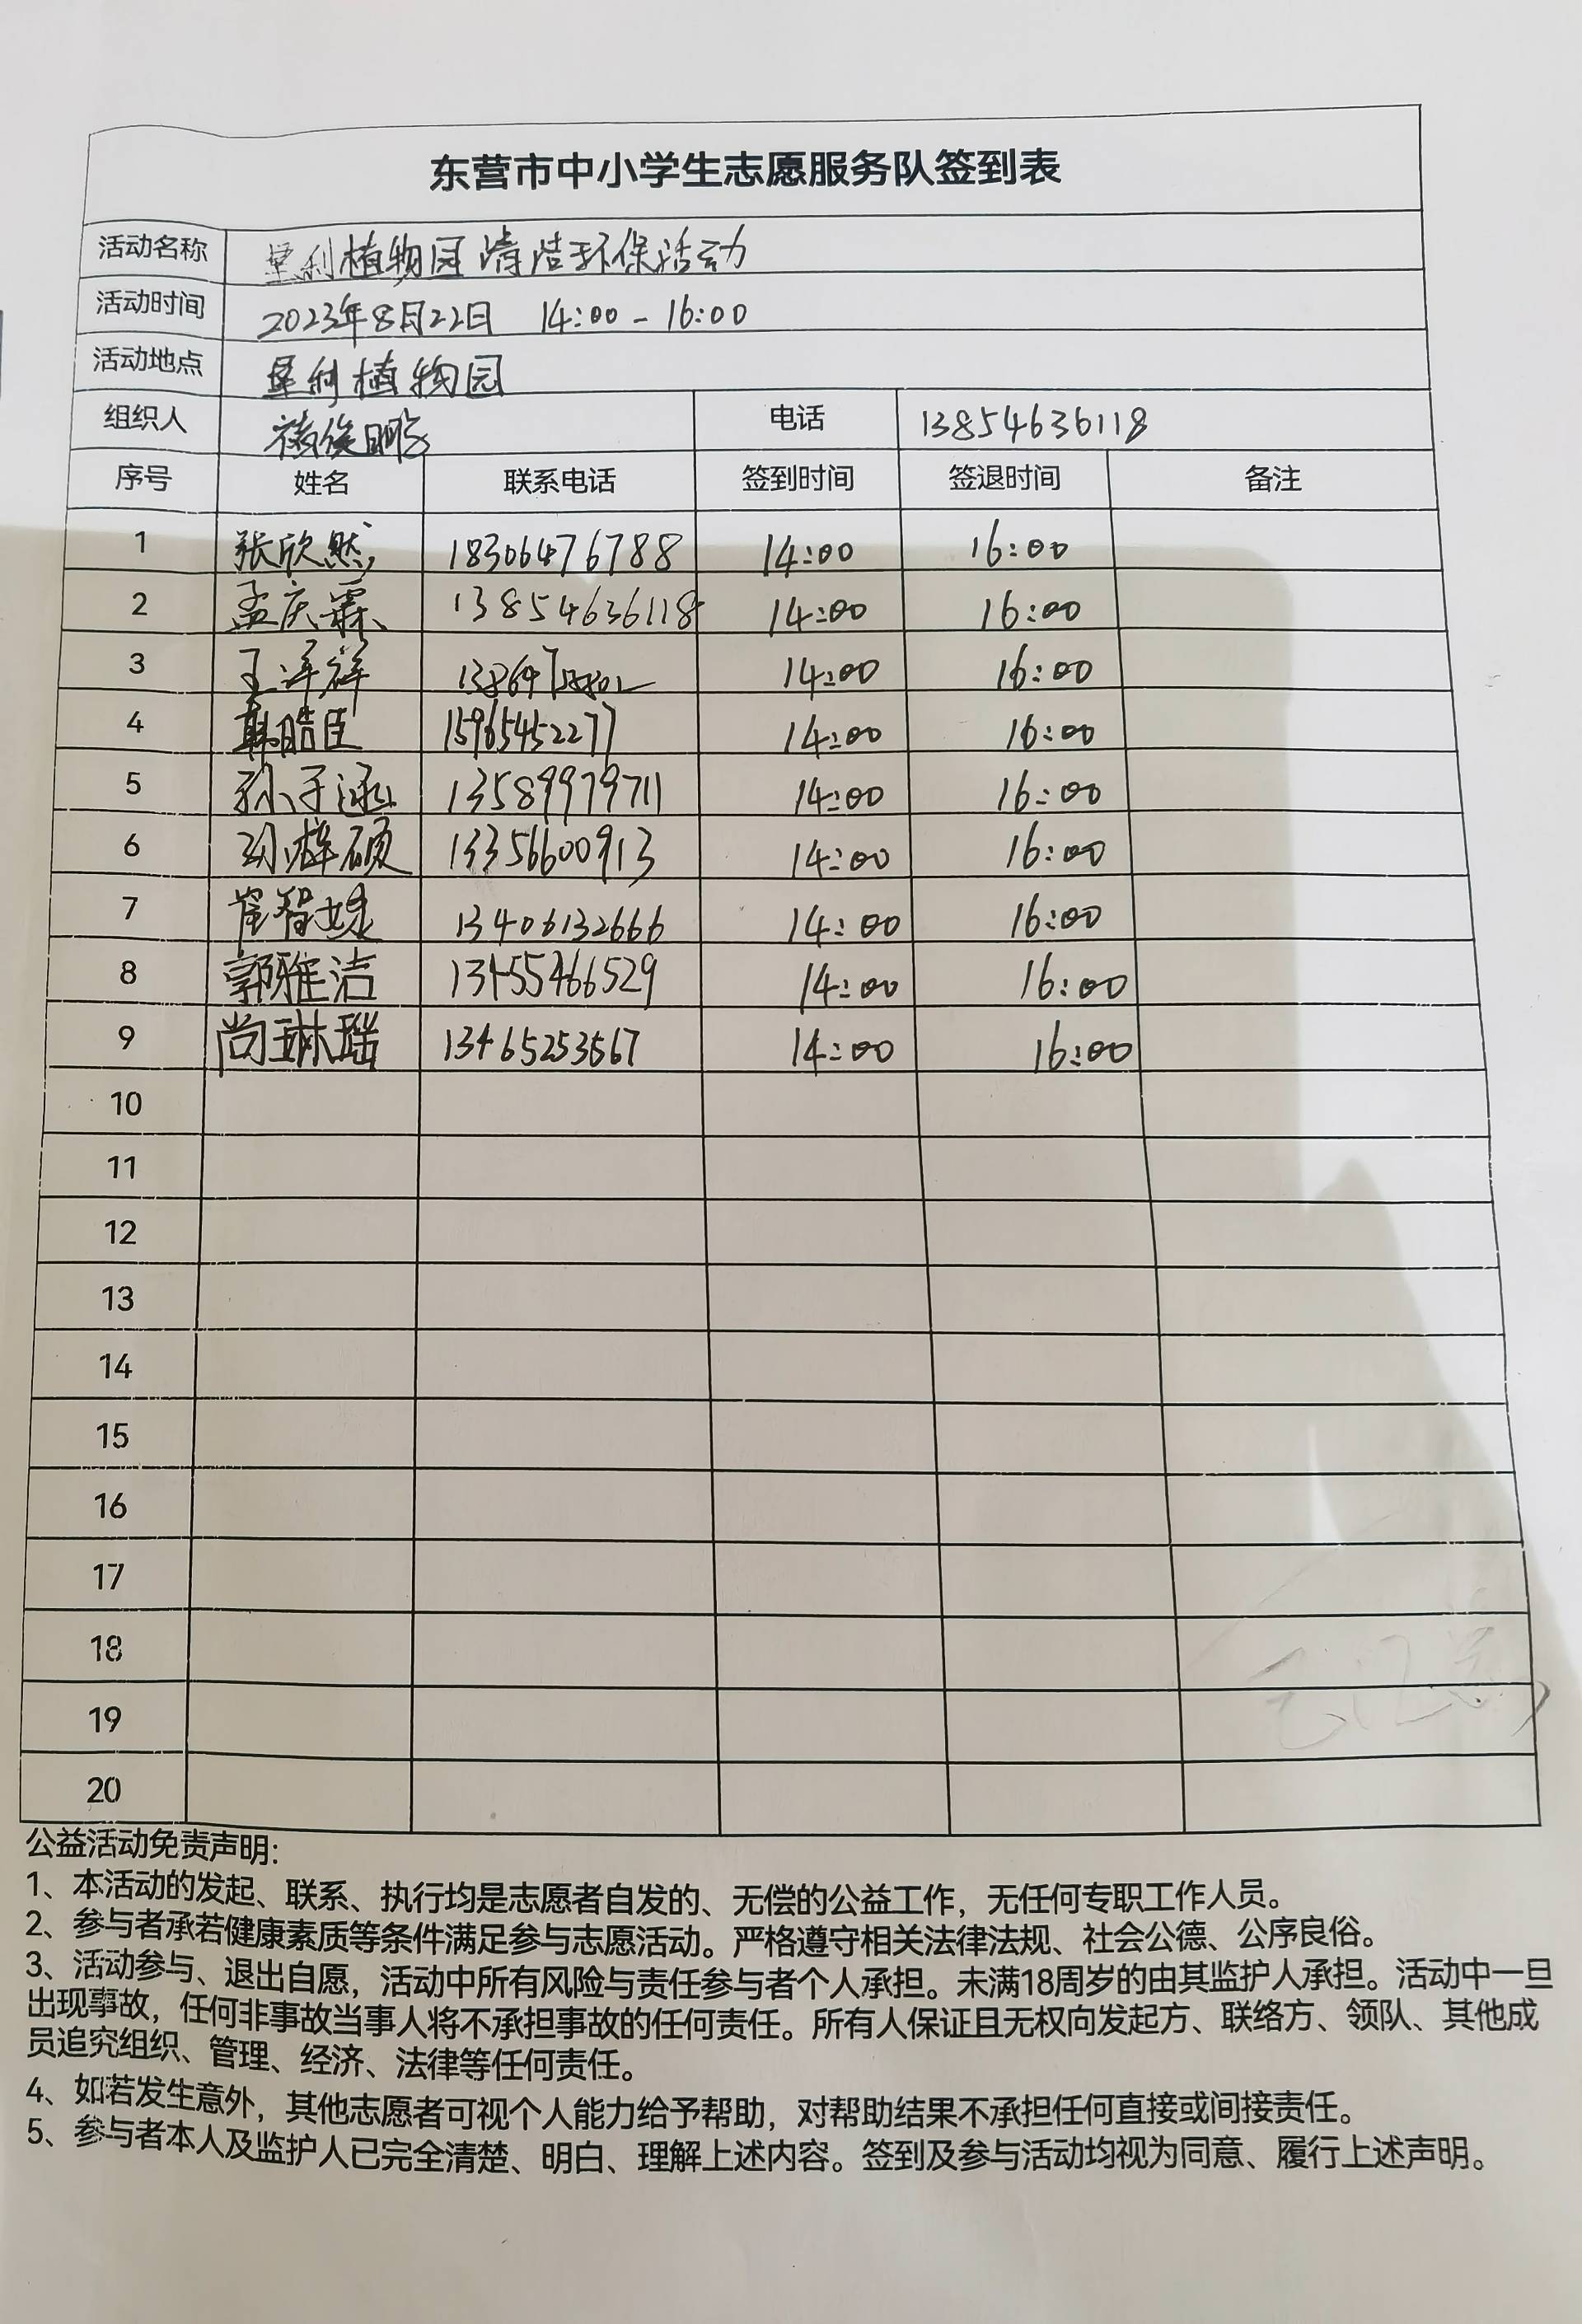 东营市中小学生志愿服务队签到表
活动名称 垦利植物园清洁环保活动
活动时间 2023年8月22日 14:00-16:00
活动地点 垦利植物园
组织人 电话 13854636118
序号 姓名 联系电话 签到时间 签退时间 备注
1 张欣然 18306476788 14:00 16:00
2 孟庆霖 13854636118 14:00 16:00
3 14:00 16:00
4 韩皓臣 15965452277 14:00 16:00
5 孙子涵 13589979711 14:00 16:00
6 刘梓硕 13356600913 14:00 16:00
7 崔智 13406132666 14:00 16:00
8 郭雅洁 13455466529 14:00 16:00
9 尚琳瑶 13465253567 14:00 16:00
10
11
12
13
14
15
16
17
18
19
20
公益活动免责声明：
1、本活动的发起、联系、执行均是志愿者自发的、无偿的公益工作，无任何专职工作人员。
2、参与者承若健康素质等条件满足参与志愿活动。严格遵守相关法律法规、社会公德、公序良俗。
3、活动参与、退出自愿，活动中所有风险与责任参与者个人承担。未满18周岁的由其监护人承担。活动中一旦
出现事故，任何非事故当事人将不承担事故的任何责任。所有人保证且无权向发起方、联络方、领队、其他成
员追究组织、管理、经济、法律等任何责任。
4、如若发生意外，其他志愿者可视个人能力给予帮助，对帮助结果不承担任何直接或间接责任。
5、参与者本人及监护人已完全清楚、明白、理解上述内容。签到及参与活动均视为同意、履行上述声明。